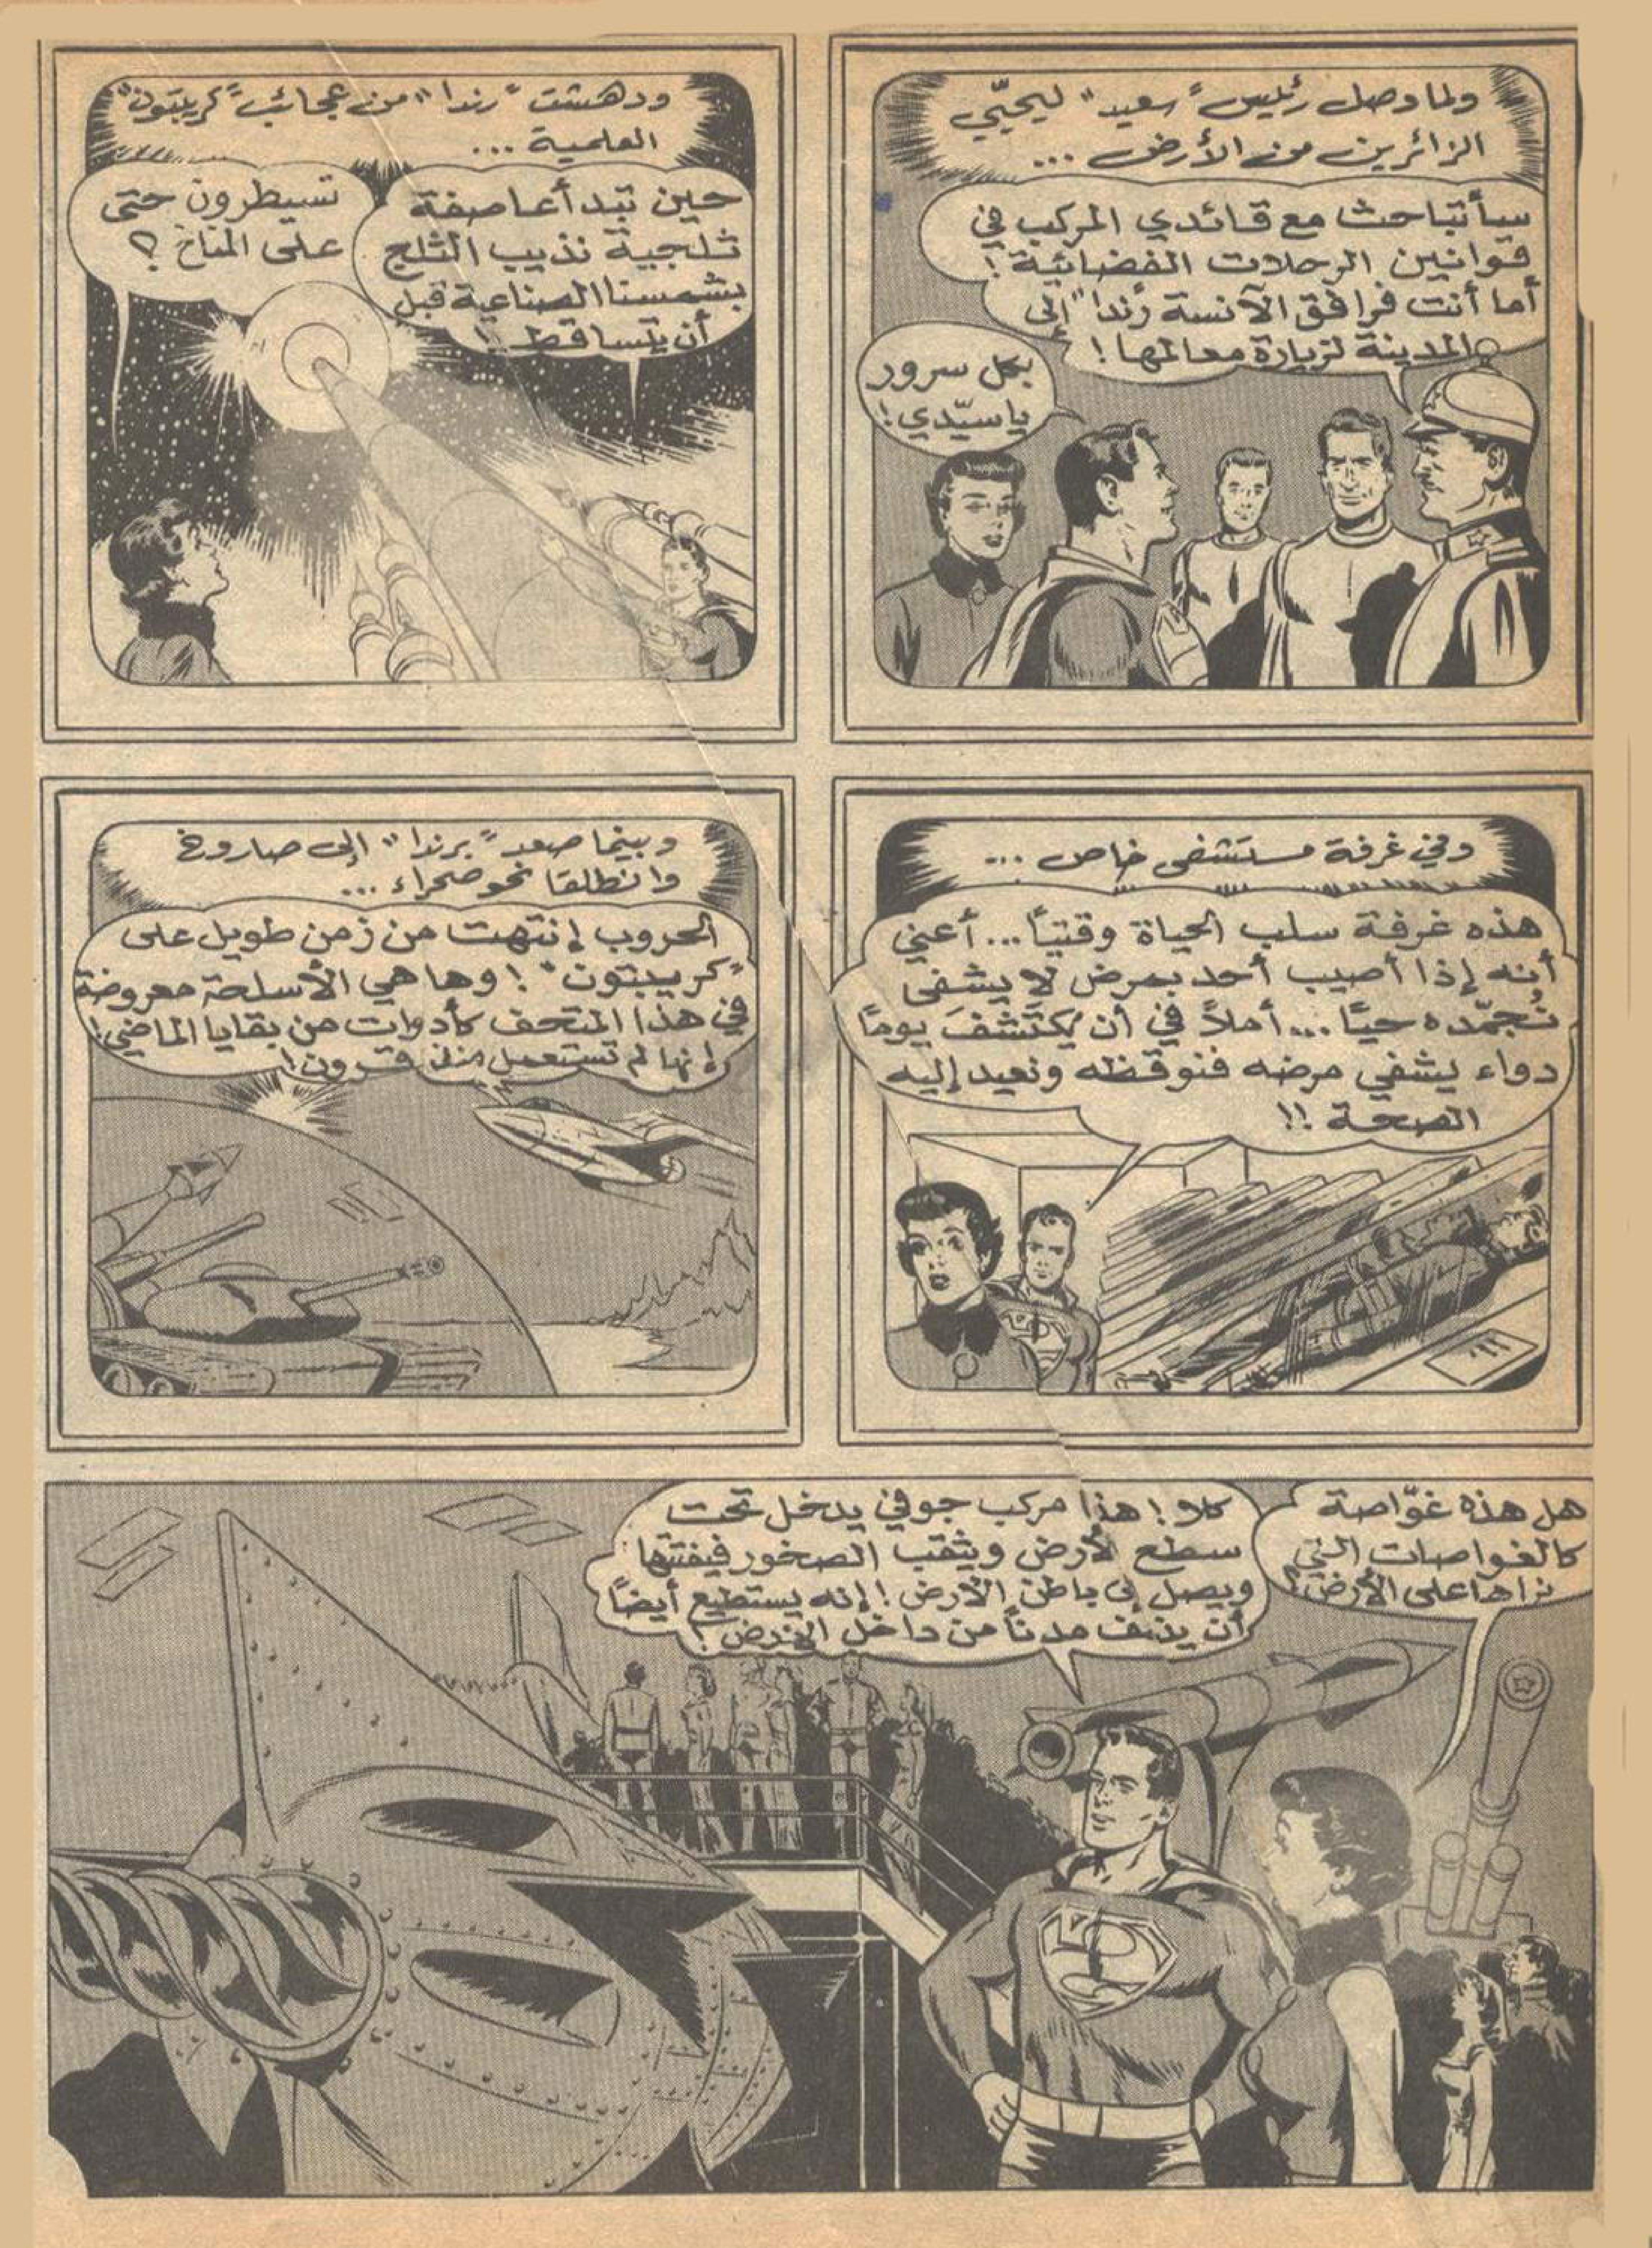 ولما وصل رئيس "سعيد" ليحيّي
الزائرين من الأرض ...
سأتباحث مع قائدي المركب في
قوانين الرحلات الفضائية !
أما أنت فرافق الآنسة "رندا" إلى
المدينة لزيارة معالمها !
بكل سرور
ياسيّدي !
ودهشت "رندا" من عجائب "كريبتون"
العلمية ...
حين تبدأ عاصفة
ثلجية نذيب الثلج
بشمسنا الصناعية قبل
أن يتساقط !!
تسيطرون حتى
على المناخ ؟
وفي غرفة مستشفى خاص ...
هذه غرفة سلب الحياة وقتيًا ... أعني
أنه إذا أصيب أحد بمرض لا يشفى
نُجمّده حيًا ... أملاً في أن يُكتَشَفَ يومًا
دواء يشفي مرضه فنوقظه ونعيد إليه
الصحة !!
وبينما صعد "برندا" إلى صاروخ
وانطلقا نحو صحراء ...
الحروب إنتهت من زمن طويل على
"كريبتون" ! وها هي الأسلحة معروضة
في هذا المتحف كأدوات من بقايا الماضي !
إنها لم تستعمل منذ قرون !
هل هذه غوّاصة
كالغواصات التي
نراها على الأرض ؟
كلا ! هذا مركب جوفي يدخل تحت
سطح الأرض ويثقب الصخور فيفتتها
ويصل إلى باطن الأرض ! إنه يستطيع أيضًا
أن ينسف مدنًا من داخل الأرض !